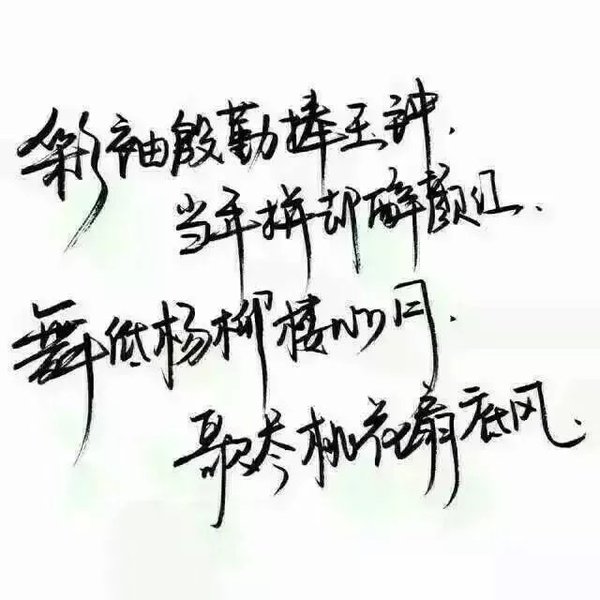 彩袖殷勤捧玉钟.
当年拼却醉颜红.
舞低杨柳楼心月.
歌尽桃花扇底风.